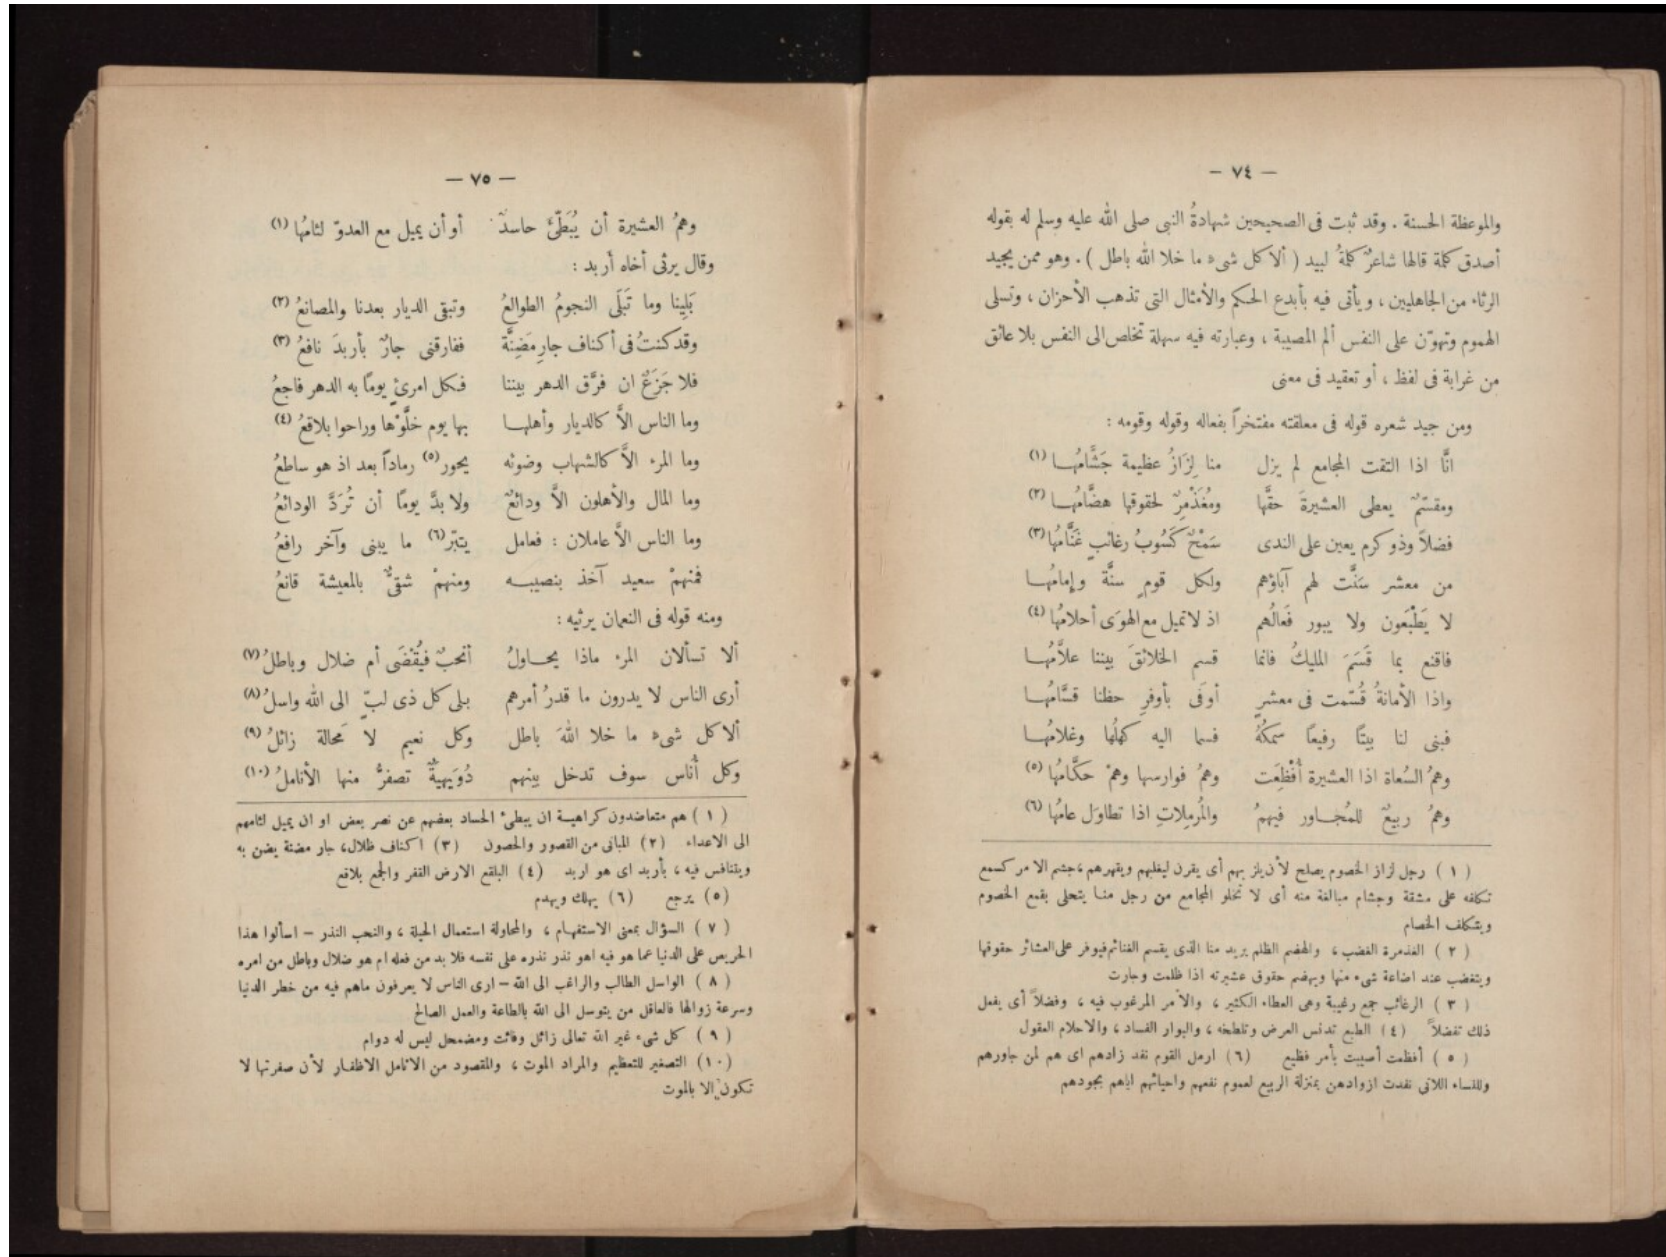 — ٧٤ —
والموعظة الحسنة . وقد ثبت فى الصحيحين شهادةُ النبى صلى الله عليه وسلم له بقوله
أصدق كلمة قالها شاعرٌ كلمةُ لبيد ( ألا كل شىء ما خلا الله باطل ) . وهو ممن يجيد
الرثاء من الجاهليين ، ويأتى فيه بأبدع الحكم والأمثال التى تذهب الأحزان ، وتسلى
الهموم وتهوّن على النفس ألم المصيبة ، وعبارته فيه سهلة تخلص الى النفس بلا عائق
من غرابة فى لفظ ، أو تعقيد فى معنى
ومن جيد شعره قوله فى معلقته مفتخراً بفعاله وقوله وقومه :
انَّا اذا التقت المجامع لم يزل منا لِزَازُ عظيمة جَشَّامُهـا (١)
ومقسّمٌ يعطى العشيرةَ حقَّها ومُغَذْمِرٌ لحقوقها هضَّامُهـا (٢)
فضلاً وذو كرم يعين على الندى سَمْحٌ كَسُوبُ رغائبٍ غَنَّامُها (٣)
من معشر سَنَّت لهم آباؤهم ولكل قومٍ سنَّة وإمامُهـا
لا يَطْبَعون ولا يبور فَعَالُهم اذ لا تميل مع الهوَى أحلامُها (٤)
فاقنع بما قَسَمَ المليكُ فانما قسم الخلائقَ بيننا علاَّمُهـا
واذا الأمانةُ قُسّمت فى معشرٍ أوفَى بأوفرِ حظنا قسَّامُهـا
فبنى لنا بيتًا رفيعًا سمكُهُ فسما اليه كهلُها وغلامُهـا
وهمُ السُعاة اذا العشيرة أُفْظِعَت وهمُ فوارسها وهمْ حكَّامُها (٥)
وهمُ ربيعٌ للمُجـاور فيهمُ والمُرمِلاتِ اذا تطاوَل عامُها (٦)
( ١ ) رجل لزاز الخصوم يصلح لأن يلز بهم أى يقرن ليغلبهم ويقهرهم ، جشم الامر كسمع
تكلفه على مشقة وجشام مبالغة منه أى لا تخلو المجامع من رجل منـا يتحلى بقمع الخصوم
ويتكلف الخصام
( ٢ ) الغذمرة الغضب ، والهضم الظلم يريد منا الذى يقسم الغنائم فيوفر على العشائر حقوقها
ويتغضب عند اضاعة شىء منها ويهضم حقوق عشيرته اذا ظلمت وجارت
( ٣ ) الرغائب جمع رغيبة وهى العطاء الكثير ، والأمر المرغوب فيه ، وفضلاً أى يفعل
ذلك تفضلاً (٤) الطبع تدنس العرض وتلطخه ، والبوار الفساد ، والاحلام العقول
( ٥ ) أفظعت أصيبت بأمر فظيع (٦) ارمل القوم نفد زادهم اى هم لمن جاورهم
وللنساء اللاتى نفدت ازوادهن بمنزلة الربيع لعموم نفعهم واحيائهم اياهم بجودهم
— ٧٥ —
وهمُ العشيرة أن يُبَطّئَ حاسدٌ أو أن يميل مع العدوّ لئامُها (١)
وقال يرثى أخاه أربد :
بَلِينا وما تَبلَى النجومُ الطوالعُ وتبقى الديار بعدنا والمصانعُ (٢)
وقد كنتُ فى أكناف جارِ مَضِنَّة ففارقنى جارٌ بأربدَ نافعُ (٣)
فلا جَزَعٌ ان فرَّق الدهر بيننا فكل امرئٍ يومًا به الدهر فاجعُ
وما الناس الاَّ كالديار وأهلهـا بها يوم خلَّوْها وراحوا بلاقعُ (٤)
وما المرء الاَّ كالشهاب وضوئه يحور (٥) رماداً بعد اذ هو ساطعُ
وما المال والأهلون الاَّ ودائعٌ ولا بدَّ يومًا أن تُرَدَّ الودائعُ
وما الناس الاَّ عاملان : فعامل يتبّر (٦) ما يبنى وآخر رافعُ
فمنهمْ سعيد آخذ بنصيبـه ومنهمْ شقىٌّ بالمعيشة قانعُ
ومنه قوله فى النعمان يرثيه :
ألا تسألان المرء ماذا يحـاولُ أنحبٌ فيُقْضَى أم ضلال وباطلُ (٧)
أرى الناس لا يدرون ما قدرُ أمرهم بلى كل ذى لبّ الى الله واسلُ (٨)
ألا كل شىء ما خلا اللهَ باطل وكل نعيم لا مَحالة زائلُ (٩)
وكل أُناس سوف تدخل بينهم دُوَيهيةٌ تصفرُّ منها الأناملُ (١٠)
( ١ ) هم متعاضدون كراهيـة ان يبطئ الحساد بعضهم عن نصر بعض او ان يميل لئامهم
الى الاعداء (٢) المبانى من القصور والحصون (٣) اكناف ظلال ، جار مضنة يضن به
ويتنافس فيه ، بأربد اى هو اربد (٤) البلقع الارض القفر والجمع بلاقع
(٥) يرجع (٦) يهلك ويهدم
( ٧ ) السؤال بمعنى الاستفهـام ، والمحاولة استعمال الحيلة ، والنحب النذر — اسألوا هذا
الحريص على الدنيا عما هو فيه اهو نذر نذره على نفسه فلا بد من فعله ام هو ضلال وباطل من امره
( ٨ ) الواسل الطالب والراغب الى الله — ارى الناس لا يعرفون ماهم فيه من خطر الدنيا
وسرعة زوالها فالعاقل من يتوسل الى الله بالطاعة والعمل الصالح
( ٩ ) كل شىء غير الله تعالى زائل وفائت ومضمحل ليس له دوام
(١٠) التصغير للتعظيم والمراد الموت ، والمقصود من الانامل الاظفـار لأن صفرتها لا
تكون الا بالموت